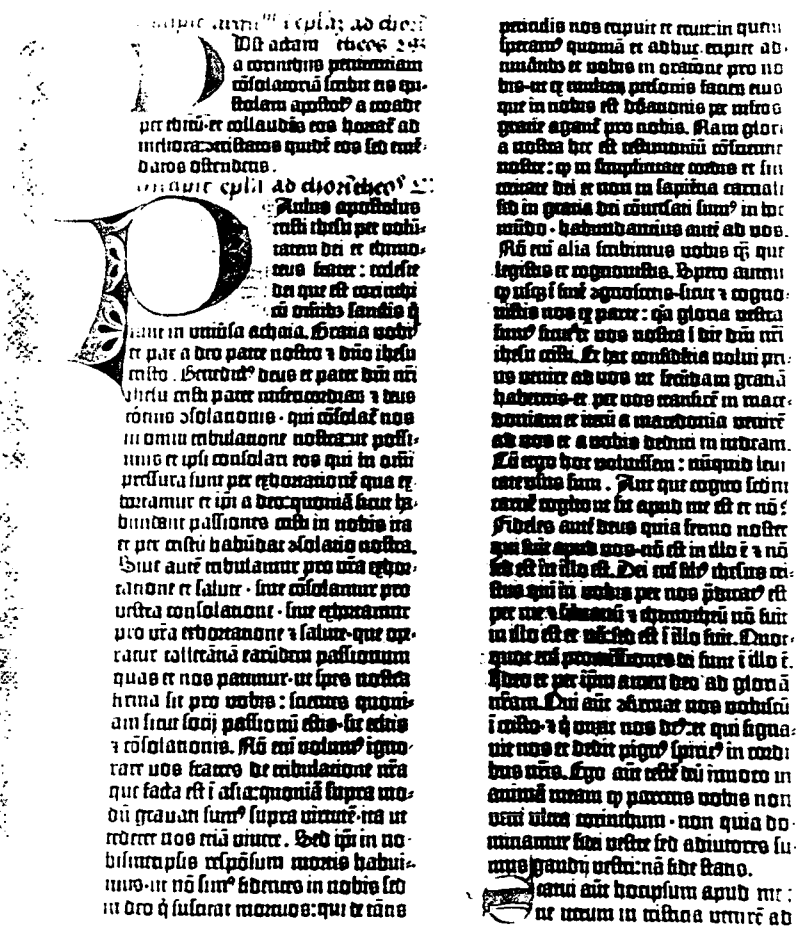 incipit epistola ad chorī
Post actam
a corinthiis penitentiam
cōsolatoriā scribit eis epi-
stolam apostolꝰ a troade
per thitū: et collaudās eos hortat̄ ad
meliora: ꝯtristatos quidē eos sed emē-
datos ostendens.
Incipit epl'a ad chorītheoˢ
Paulus apostolus
cristi ihesu per volū-
tatem dei et thimo-
teus frater: ecclesie
dei que est corinthi
cū omībꝫ sanctis q̄
sunt in universa achaia. Gracia vobis
et pax a deo patre nostro ⁊ dn̄o ihesu
cristo. Benedictꝰ deus et pater dn̄i nr̄i
ihesu cristi pater misericordiarū ⁊ deus
tocius ꝯsolationis. qui cōsolat̄ nos
in omni tribulatione nostra: ut possi-
mus et ipsi consolari eos qui in omī
pressura sunt per exhortationē qua ex-
hortamur et ip̄i a deo: quoniā sicut ha-
bundant passiones cristi in nobis ita
et per cristū habūdat ꝯsolatio nostra.
Sive autē tribulamur pro vr̄a exhor-
tatione et salute. sive cōsolamur pro
vestra consolatione. sive exhortamur
pro vr̄a exhortatione ⁊ salute. que ope-
ratur tollerātiā earūdem passionum
quas et nos patimur. ut spes nostra
firma sit pro vobis: scientes quoni-
am sicut socij passionū estis. sic eritis
⁊ cōsolationis. Nō em̄ volumꝰ igno-
rare vos fratres de tribulatione nr̄a
que facta est ī asia: quoniā supra mo-
dū gravati sumꝰ supra virtutē. ita ut
tederet nos etiā vivere. Sed ip̄i in no-
bismetipsis respōsum mortis habui-
mus. ut nō simꝰ fidentes in nobis sed
in deo q̄ suscitat mortuos: qui de tātis
periculis nos eripuit et eruit: in quem
speramꝰ quoniā et adhuc eripiet ad-
iuvātibꝫ et vobis in oratione pro no-
bis. ut ex multaꝝ personis facieꝝ eius
que in nobis est donationis per multos
gracie agant̄ pro nobis. Nam glori-
a nostra hec est testimoniū cōscientie
nostre: ꝙ in simplicitate cordis et sin-
ceritate dei et non in sapientia carnali
sed in gracia dei cōversati sumꝰ in hoc
mūdo. habundantius autē ad vos.
Nō em̄ alia scribimus vobis q̄ꝫ que
legistis et cognovistis. Spero autem
ꝙ usqꝫ ī finē ꝯgnoscetis. sicut ⁊ cogno-
vistis nos ex parte: q̄a gloria vestra
sumꝰ sicut et vos nostra ī die dn̄i nr̄i
ihesu cristi. Et hac confidētia volui pri-
us venire ad vos ut secūdam gratiā
haberetis. et per vos transire in mace-
doniam et iterū a macedonia venire
ad vos et a vobis deduci in iudeam.
Cū ergo hoc voluissem: nūquid levi-
tate usus sum. Aut que cogito secūm
carnē cogito ut sit apud me est et nō?
Fidelis autē deus quia sermo noster
qui fuit apud vos. nō est in illo ē ⁊ nō
sed est in illo est. Dei em̄ filiꝰ ihesus cri-
stus qui in vobis per nos p̄dicatꝰ est
per me ⁊ silvanū ⁊ thimotheū nō fuit
in illo est et nō: sed est ī illo fuit. Quot-
quot em̄ promissiones dei sunt ī illo ē.
Ideo et per ip̄m amen deo ad gloriā
nr̄am. Qui aūt ꝯfirmat nos vobiscū
ī cristo. ⁊ q̄ unxit nos deꝰ: et qui signa-
vit nos et dedit pignꝰ spiritꝰ in cordi-
bus nr̄is. Ego aūt testē deū invoco in
animā meam ꝙ parcens vobis non
veni ultra corinthum. non quia do-
minamur fidei vestre sed adiutores su-
mus gaudij vestri: nā fide statis.
Statui aūt hoc ipsum apud me:
ne iterum in tristicia venirē ad